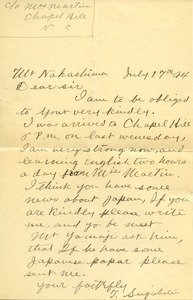 c/o Mrs Martin
Chapel Hill
N C
Mr Nakashima July 17th 94
Dear sir
I am to be obliged
to your very kindly.
I was arrived to Chapel Hill
6 P.M. on last wenesday,
I am very strong now, and
learning English two hours
a day from Miss Martin.
I think you have some
news about Japan, If you
are kindly please write
me, and yo be meet
Mr Yamaji ask him,
that If he have some
Japanese papar please
sent me.
your faithfly
T.